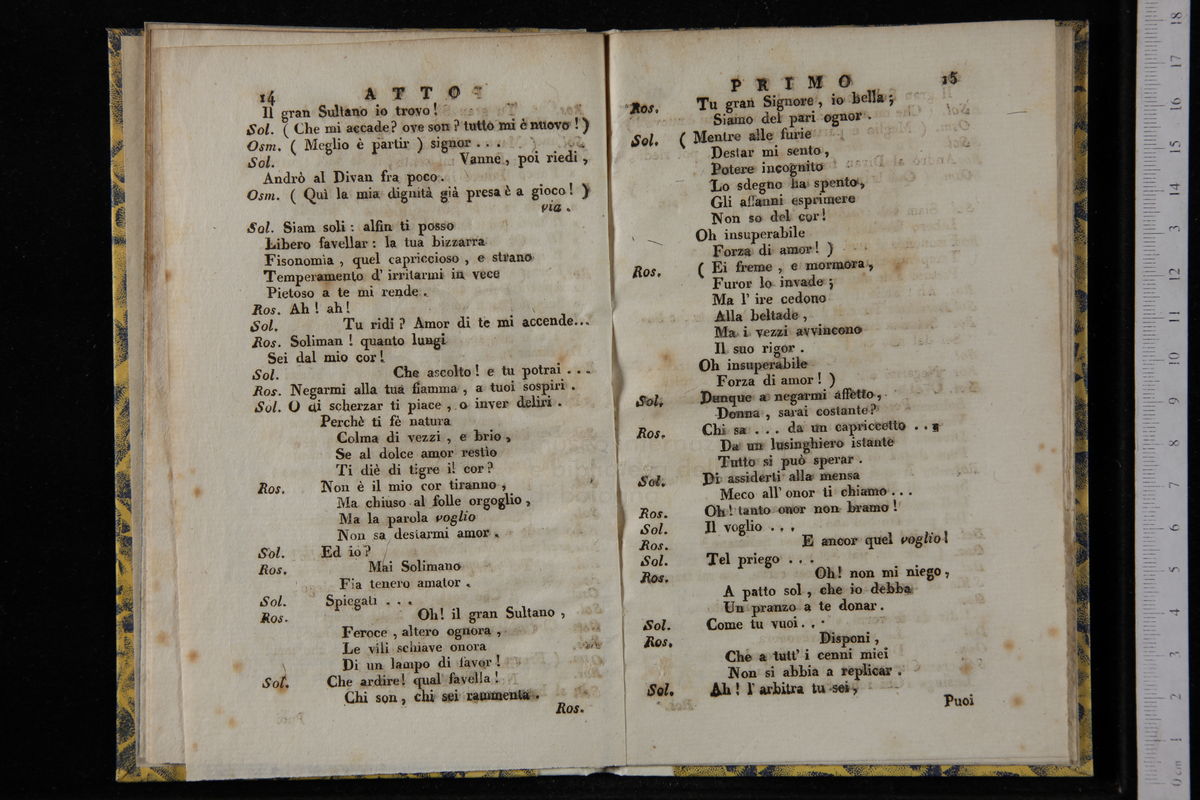 14 ATTO
Il gran Sultano io trovo!
Sol. ( Che mi accade? ove son? tutto mi è nuovo ! )
Osm. ( Meglio è partir ) signor . . .
Sol. Vanne, poi riedi,
Andrò al Divan fra poco.
Osm. ( Quì la mia dignità già presa è a gioco! )
via.
Sol. Siam soli: alfin ti posso
Libero favellar: la tua bizzarra
Fisonomìa, quel capriccioso, e strano
Temperamento d' irritarmi in vece
Pietoso a te mi rende.
Ros. Ah! ah!
Sol. Tu ridi? Amor di te mi accende...
Ros. Soliman! quanto lungi
Sei dal mio cor!
Sol. Che ascolto! e tu potrai . . .
Ros. Negarmi alla tua fiamma, a tuoi sospiri.
Sol. O di scherzar ti piace, o inver deliri.
Perchè ti fè natura
Colma di vezzi, e brio,
Se al dolce amor restìo
Ti diè di tigre il cor?
Ros. Non è il mio cor tiranno,
Ma chiuso al folle orgoglio,
Ma la parola voglio
Non sa destarmi amor.
Sol. Ed io?
Ros. Mai Solimano
Fia tenero amator.
Sol. Spiegati . . .
Ros. Oh! il gran Sultano,
Feroce, altero ognora,
Le vili schiave onora
Di un lampo di favor!
Sol. Che ardire! qual favella!
Chi son, chi sei rammenta.
Ros.
PRIMO 15
Ros. Tu gran Signore, io bella;
Siamo del pari ognor.
Sol. ( Mentre alle furie
Destar mi sento,
Potere incognito
Lo sdegno ha spento,
Gli affanni esprimere
Non so del cor!
Oh insuperabile
Forza di amor! )
Ros. ( Ei freme, e mormora,
Furor lo invade;
Ma l' ire cedono
Alla beltade,
Ma i vezzi avvincono
Il suo rigor.
Oh insuperabile
Forza di amor! )
Sol. Dunque a negarmi affetto,
Donna, sarai costante?
Ros. Chi sa . . . da un capriccetto . . .
Da un lusinghiero istante
Tutto si può sperar.
Sol. Di assiderti alla mensa
Meco all' onor ti chiamo . . .
Ros. Oh! tanto onor non bramo!
Sol. Il voglio . . .
Ros. E ancor quel voglio!
Sol. Tel priego . . .
Ros. Oh! non mi niego,
A patto sol, che io debba
Un pranzo a te donar.
Sol. Come tu vuoi. . .
Ros. Disponi,
Che a tutt' i cenni miei
Non si abbia a replicar.
Sol. Ah! l' arbitra tu sei,
Puoi
0 cm 1 2 3 4 5 6 7 8 9 10 11 12 13 14 15 16 17 18